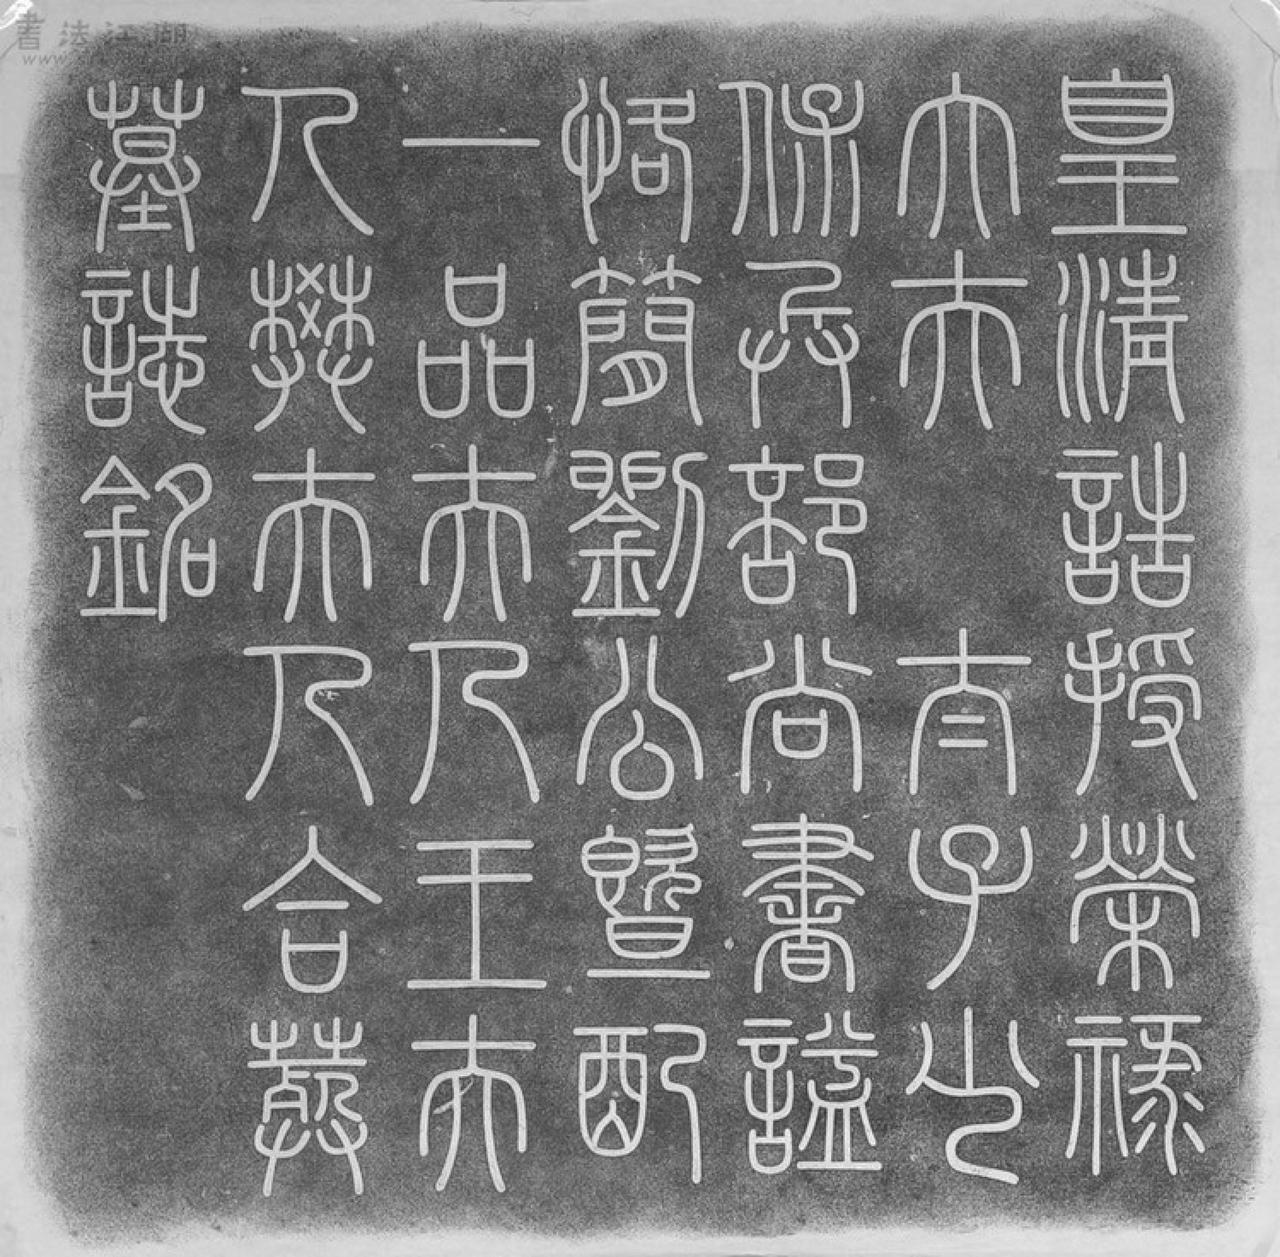 皇清誥授榮祿
大夫　太子少
保兵部尚書諡
恪簡劉公暨配
一品夫人王夫
人樊夫人合葬
墓誌銘
書法江湖